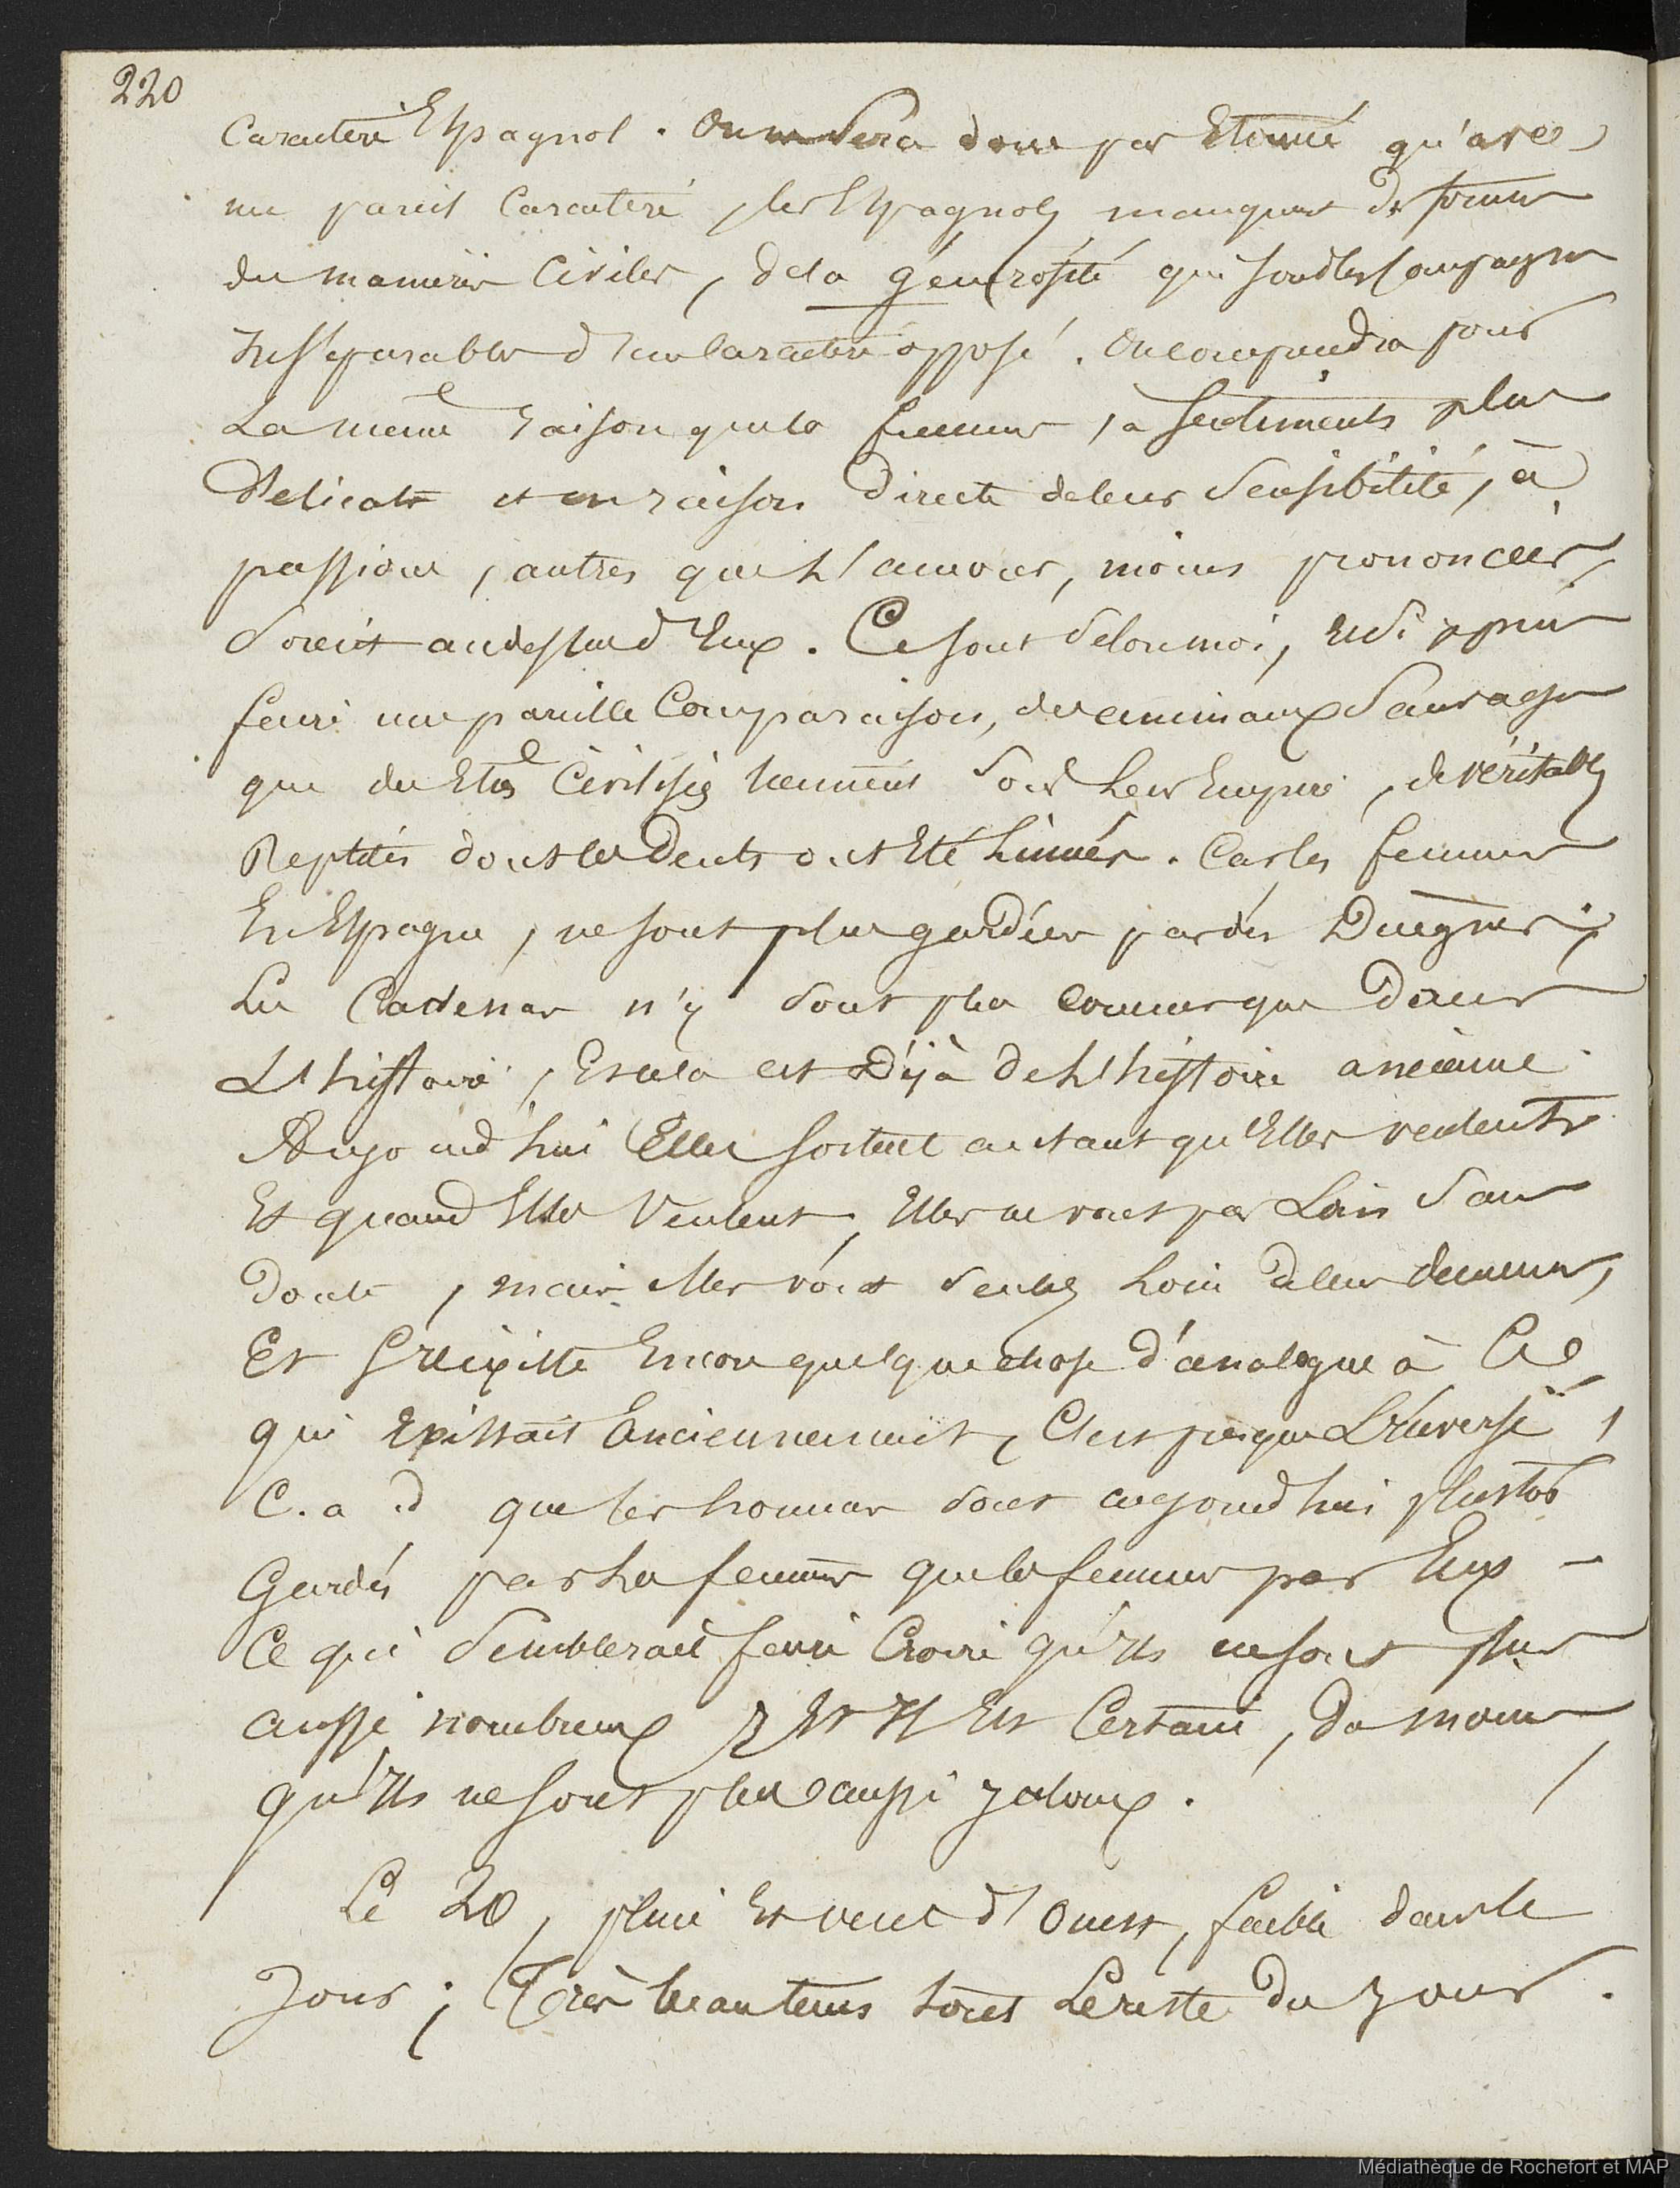 220
Caractere Espagnol. On ne sera donc pas Etonné qu'avec
un pareil Caractere, les Espagnols manquent de formes
de manieres Civiles, de la générosité qui sont les compagnes
Inséparables d'un caractere opposé. On comprendra pour
La meme raison que les femmes, à Sentiments plus
Delicats et en raison Directe de leur Sensibilité, à
passions, autres que L'amour, moins prononcées,
Soient au dessus d'Eux. Ce sont selon moi, Et si j'ose
faire une pareille Comparaison, des animaux Sauvages
que des Etres Civilisés tiennent sous Leur Empire, de véritables
Reptiles dont les Dents ont Eté Limées. Car les femmes
En Espagne, ne sont plus gardées par des Duegnes;
Les Cadenas n'y sont plus connus que dans
L'histoire, Et cela est Déjà de L'histoire ancienne.
Aujourd'hui Elles sortent autant qu'Elles veulent
Et quand Elles Veulent, Elles ne vont pas Loin sans
Doute, mais elles vont seules Loin de leur demeure,
Et S'il existe Encore quelque chose d'analogue à Ce
qui Existait Anciennement, C'est presque L'inverse,
C. a. d que les hommes sont aujourd'hui plustôt
Gardés par Les femmes que les femmes par Eux -
Ce qui Semblerait faire Croire qu'ils ne sont plus
aussi nombreux Et Il Est Certain, du moins
qu'ils ne sont plus aussi jaloux.
Le 20, pluie Et vent d'Ouest, faible dans le
Jour; Très beau tems tout Le reste du jour.
Médiathèque de Rochefort et MAP